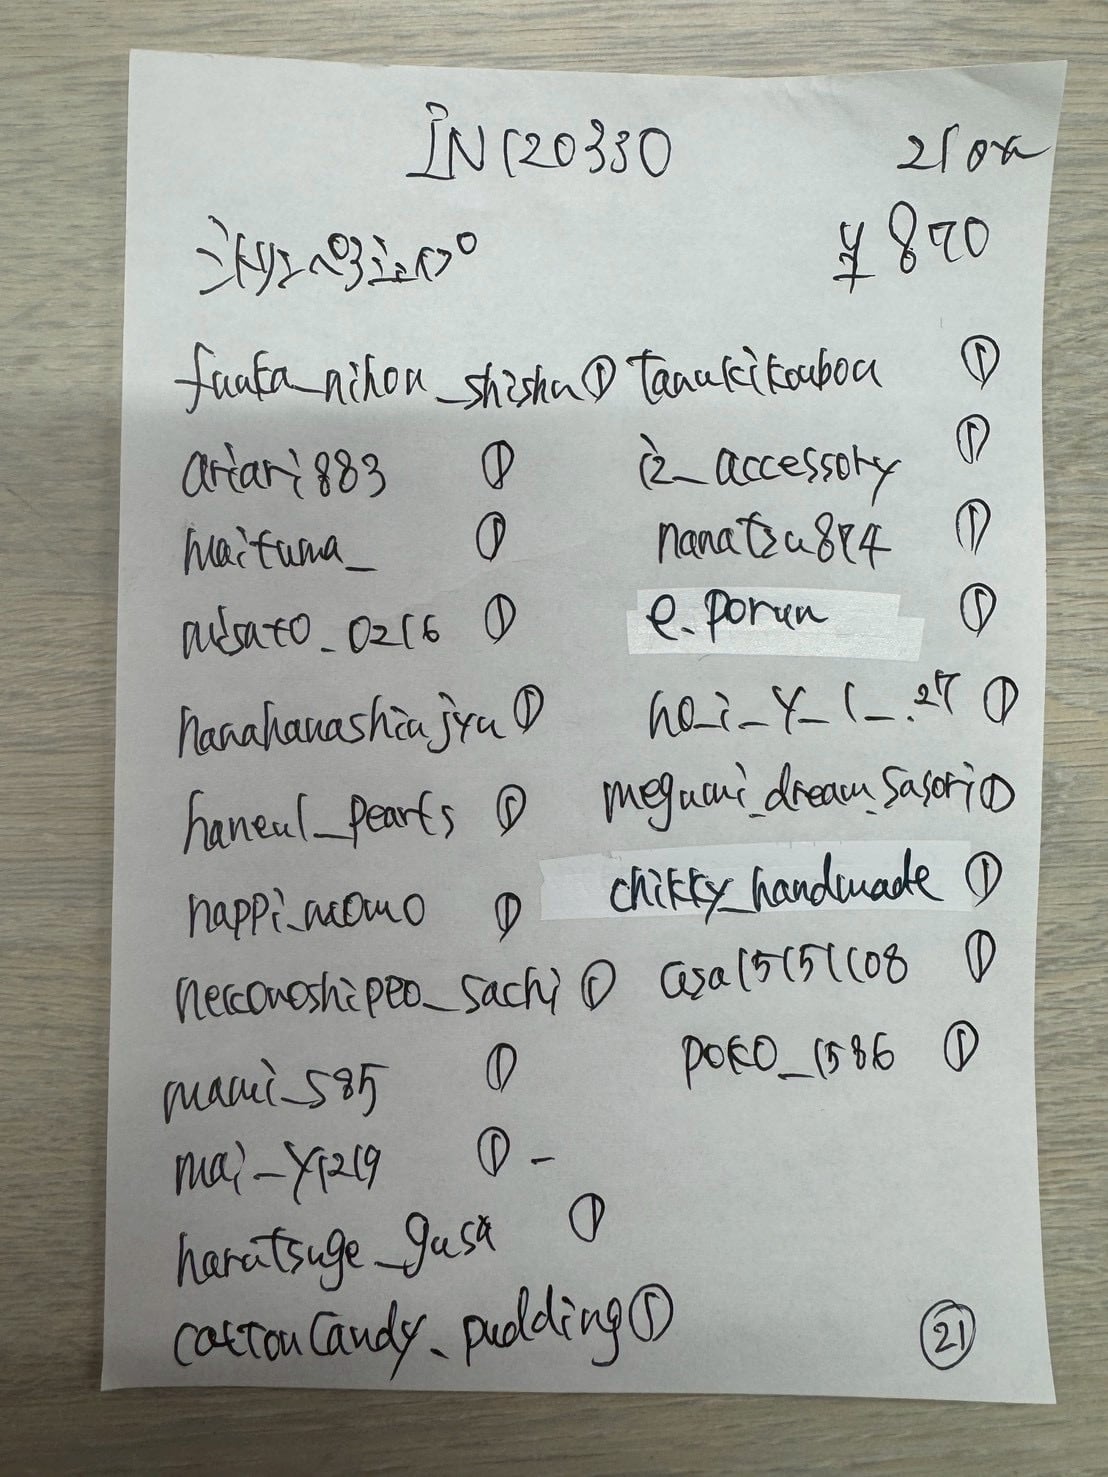 IN120330
21 ox
¥870
fuuka_nihon_shishu ① tanukikoubou ①
ariari883 ① iz_accessory ①
maituma_ ① nanatsu874 ①
misato_0216 ① e.porun ①
hanahanashinjyu ① ho_i_y_1_.27 ①
haneul_pearls ① megumi_dream_sasori ①
happi_momo ① chikky_handmade ①
nekonoshippo_sachi ① asa15151108 ①
mami_585 ① poko_1586 ①
mai_y1219 ① -
harutsuge_gusa ①
cottoncandy_pudding ①
㉑